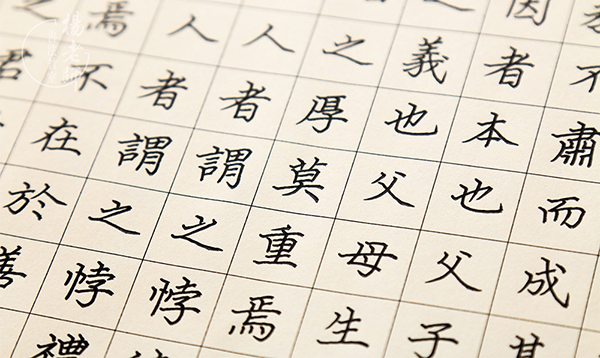 不肅而成其
因者本也父子
義也父母生
之厚莫重焉
人者謂之悖
人者謂之悖禮
焉不在於善
君